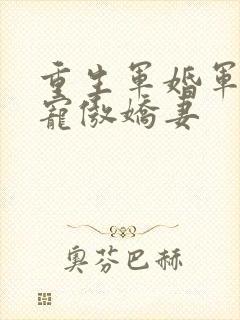 重生軍婚軍
寵傲嬌妻
奧芬巴赫